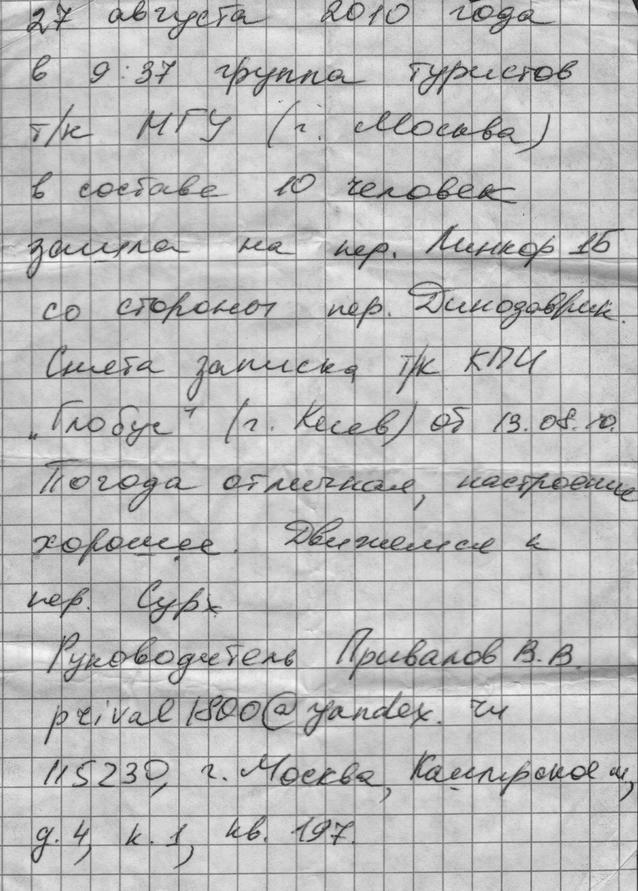 27 августа 2010 года
в 9:37 группа туристов
т/к МГУ (г. Москва)
в составе 10 человек
зашла на пер. Линкор 1Б
со стороны пер. Динозаврик.
Снята записка т/к КПИ
„Глобус" (г. Киев) от 13.08.10.
Погода отличная, настроение
хорошее. Движемся к
пер. Сурх
Руководитель Привалов В.В.
prival1800@yandex.ru
115230, г. Москва, Каширское ш,
д.4, к.1, кв. 197.